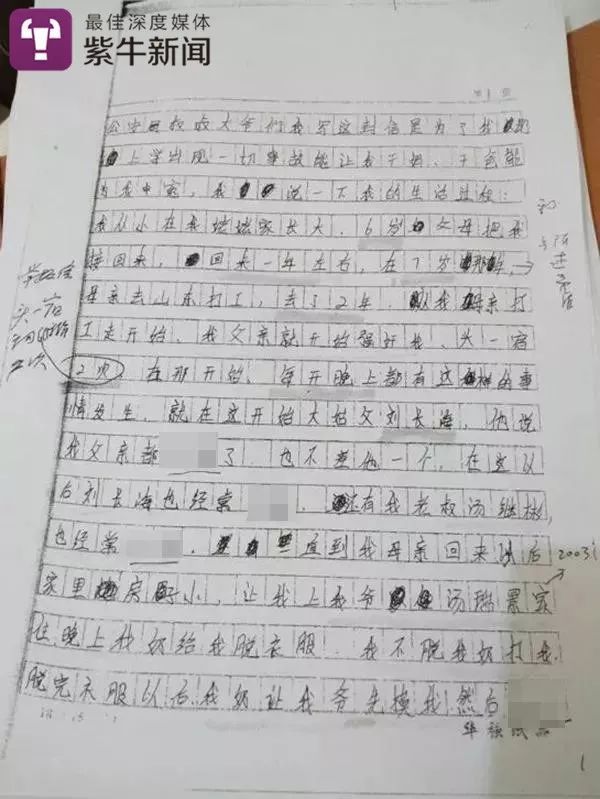 最佳深度媒体
紫牛新闻
叔叔大爷们我写这封信是为了我
上学出现一切事故能让我干妈、干爸能
为我申冤，我说一下我的生活过程：
我从小在我姥姥家长大，6岁父母把我
接回来，回来一年左右，在7岁那年，
母亲去山东打工，去了2年，从我母亲打
工走开始，我父亲就开始强奸我、头一宿
2次，在那开始，每天晚上都有这样的事
情发生，就在这开始大姑父刘长海，他说
我父亲都 了，也不差他一个，在这以
后刘长海也经常 ，还有我老叔汤继彬，
也经常 ，一直到我母亲回来以后
2003
家里房子小，让我上我爷汤瑞景家
住，晚上我奶给我脱衣服，我不脱我奶打我，
脱完衣服以后我奶让我爷先摸我然后
头一宿
2次
1